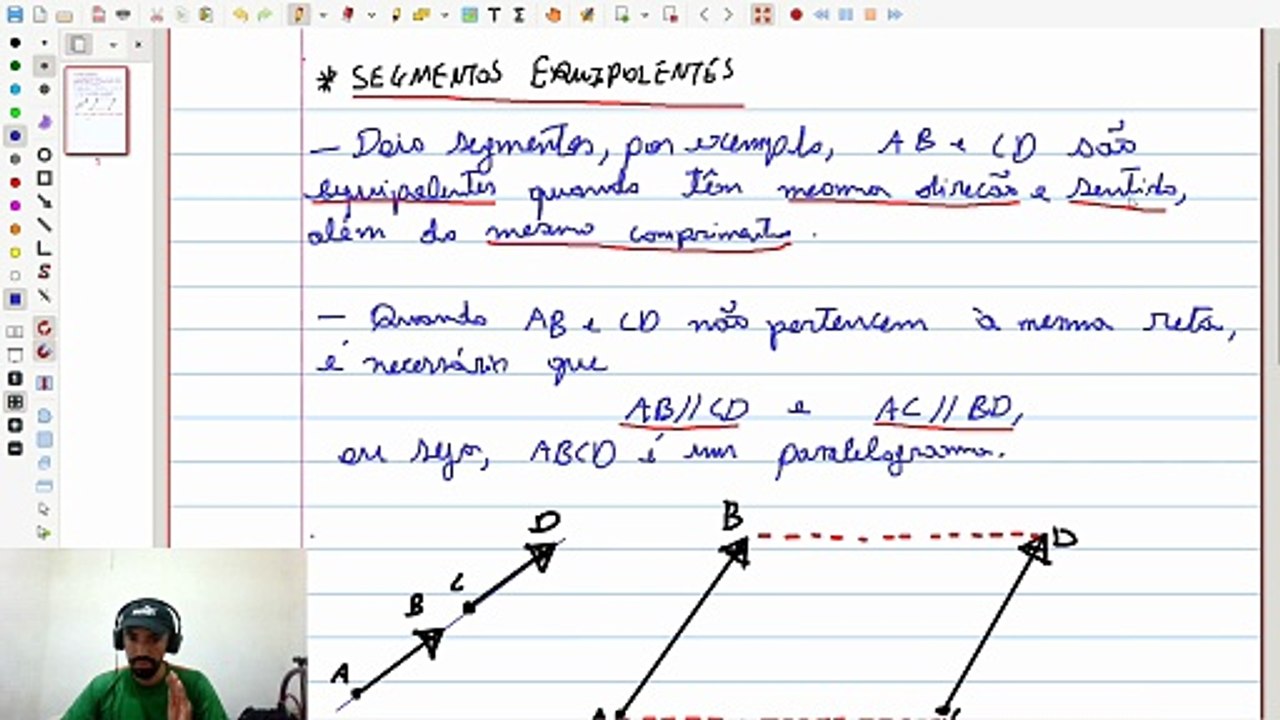 * SEGMENTOS EQUIPOLENTES
– Dois segmentos, por exemplo, AB e CD são
equipolentes quando têm mesma direção e sentido,
além do mesmo comprimento.
– Quando AB e CD não pertencem à mesma reta,
é necessário que
AB//CD e AC//BD,
ou seja, ABCD é um paralelogramo.
D
C
B
A
B
D
A
C